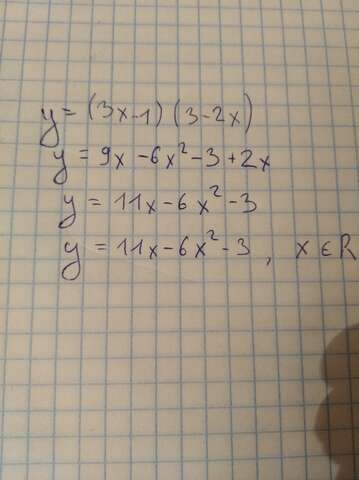 y = (3x-1) (3-2x)
y = 9x - 6x² - 3 + 2x
y = 11x - 6x² - 3
y = 11x - 6x² - 3 , x ∈ R